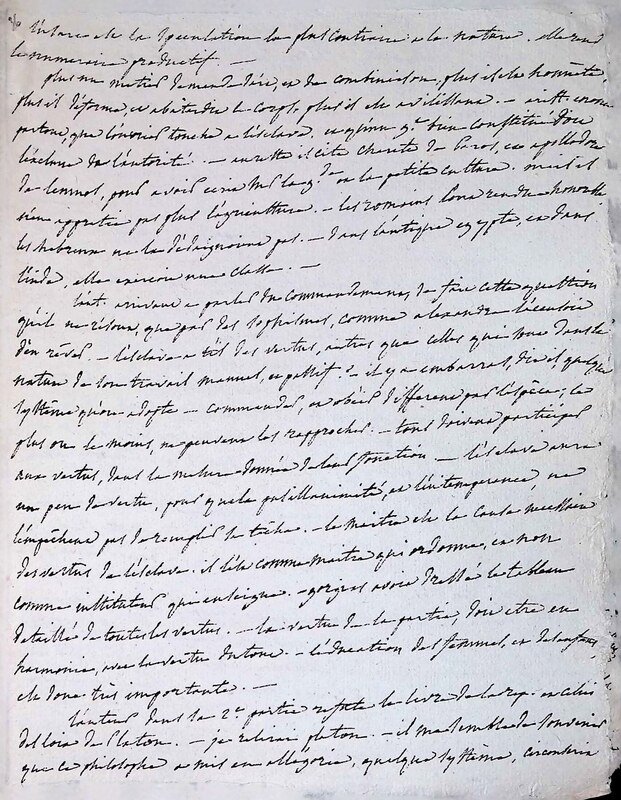 l'usure est la speculation la plus contraire a la nature. elle rend
le numeraire productif. —
plus un metier demande d'idée, et de combinaison, plus il est honnete,
plus il déforme, et abatardit le corps, plus il est avilissant. — arist. croit
partout, que l'ouvrier touche a l'esclave, et qu'un g.t bien constitué doit
l'exclure de l'autorité. — ensuite il cite charete de paros, et apollodore
de lemnos, pour avoir écrit sur la g.de ou la petite culture. mais il
n'en apprecie pas plus l'agriculture. — les romains l'ont rendue honorable
les hebreux ne la dédaignoient pas. — dans l'antique egypte, et dans
l'inde, elle exerçoit une classe. —
l'aut. arrivant a parler du commandement, se fait cette question
qu'il ne résout, que par des sophismes, comme alexandre
— l'esclave a t'il des vertus, autres que celles qui sont dans la
nature de son travail manuel, et passif ? — il y a embarras, dit il, quelque
systême qu'on adopte — commander, et obéir different par l'espèce ; le
plus ou le moins, ne peuvent les rapprocher — tous doivent participer
aux vertus, dans la mesure donnée de leur fonction — l'esclave aura
un peu de vertu, pour que la pusillanimité, et l'intemperance, ne
l'empêchent pas de remplir sa tâche. — le maitre est la cause necessaire
des vertus de l'esclave. il l'est comme maitre qui ordonne, et non
comme instituteur qui enseigne. — gorgias avoit dressé le tableau
detaillé de toutes les vertus. — la vertu de la partie, doit etre en
harmonie, avec la vertu du tout. — l'éducation des femmes, et des enfans
est donc très importante. —
l'auteur dans la 2.e partie refute le livre de la rep. et celui
des loix de Platon. — je relirai platon. — il me semble de souvenir
que ce philosophe a mis en allégorie, quelque systême,